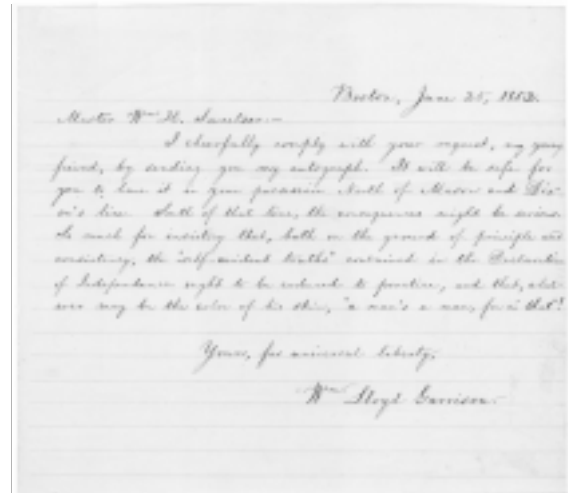 Boston, June 25, 1852.
Master Wm H.
I cheerfully comply with your request, my young
friend, by sending you my autograph. It will be safe for
you to have it in your possession North of Mason and Dix-
on's line. South of that line, the consequences might be serious.
So much for insisting that, both on the ground of principle and
consistency, the "self-evident truths" contained in the Declaration
of Independence ought to be reduced to practice, and that, what-
ever may be the color of his skin, "a man's a man, for a' that"!
Yours, for universal liberty,
Wm Lloyd Garrison.